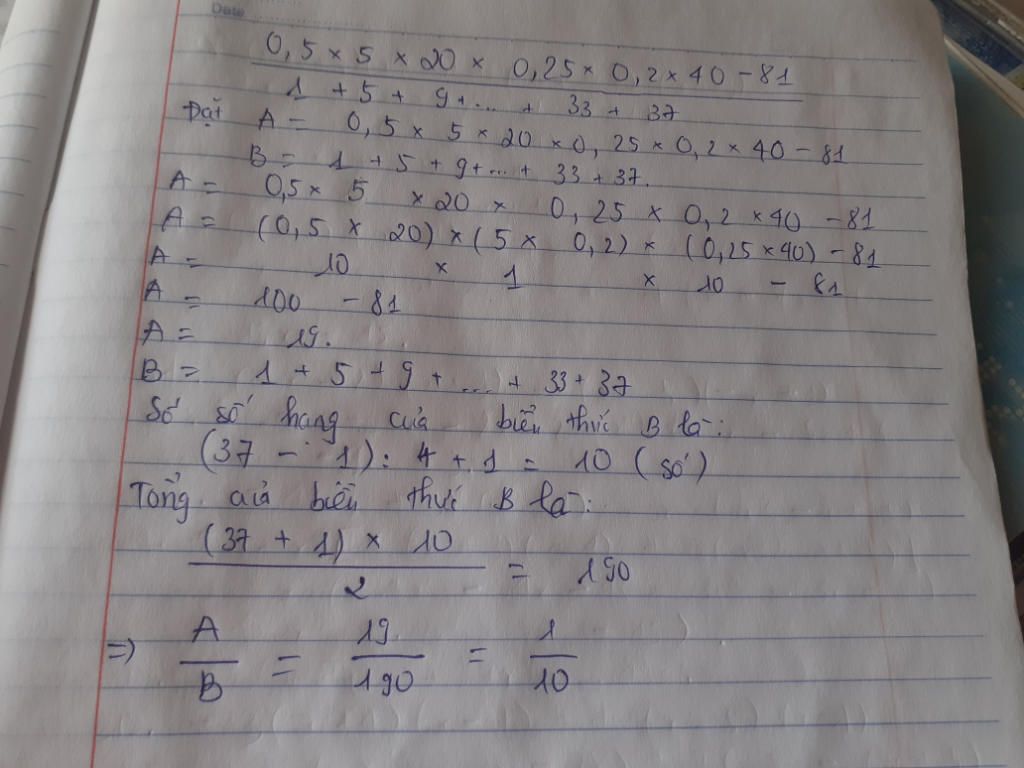 Date
0,5 × 5 × 20 × 0,25 × 0,2 × 40 - 81
1 + 5 + 9 + ... + 33 + 37
Đặt A = 0,5 × 5 × 20 × 0,25 × 0,2 × 40 - 81
B = 1 + 5 + 9 + ... + 33 + 37.
A = 0,5 × 5 × 20 × 0,25 × 0,2 × 40 - 81
A = (0,5 × 20) × (5 × 0,2) × (0,25 × 40) - 81
A = 10 × 1 × 10 - 81
A = 100 - 81
A = 19.
B = 1 + 5 + 9 + ... + 33 + 37
Số số hạng của biểu thức B là:
(37 - 1) : 4 + 1 = 10 (số)
Tổng của biểu thức B là:
(37 + 1) × 10
2
= 190
=> A/B = 19/190 = 1/10